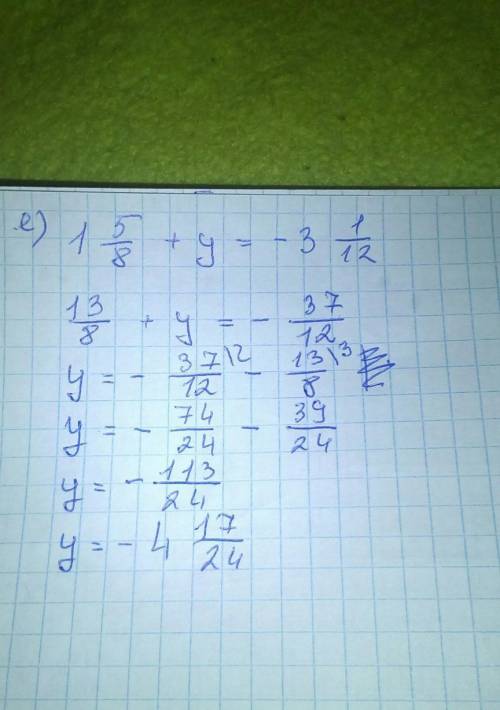 е) 1 5/8 + y = - 3 1/12
13/8 + y = - 37/12
y = - 37\2/12 - 13\3/8
y = - 74/24 - 39/24
y = - 113/24
y = - 4 17/24